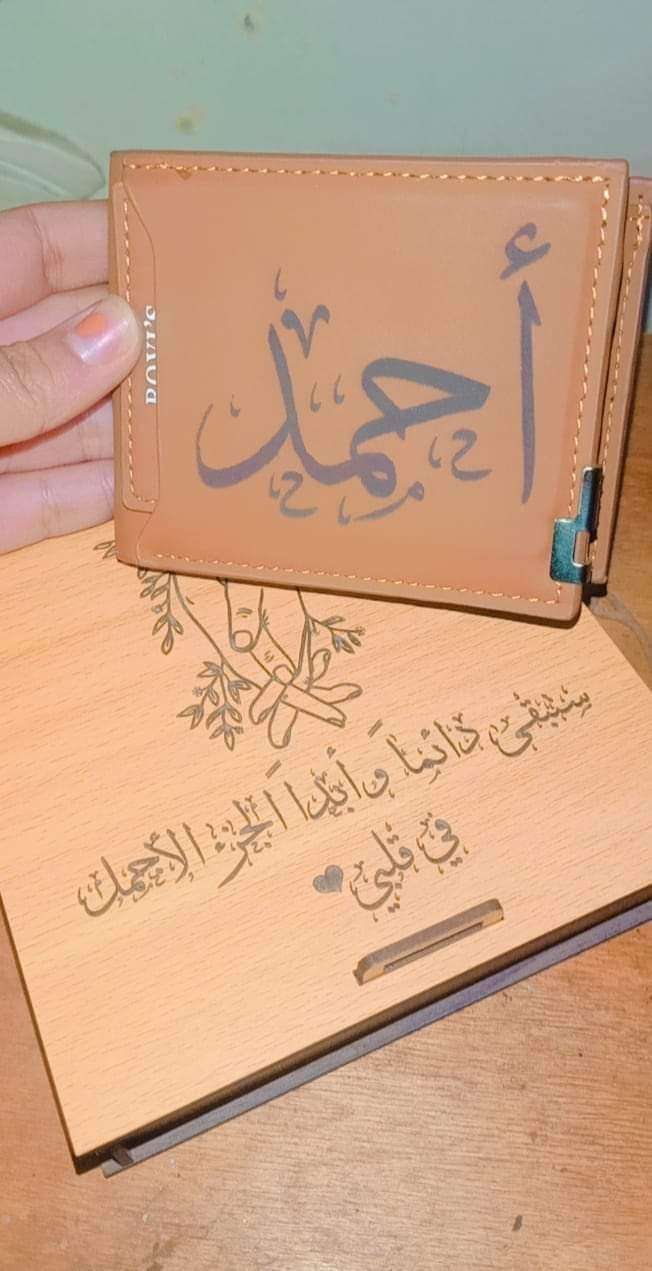 أحمد
BOVI'S
سنبقى دائماً وأبداً الجزء الأجمل
في قلبي